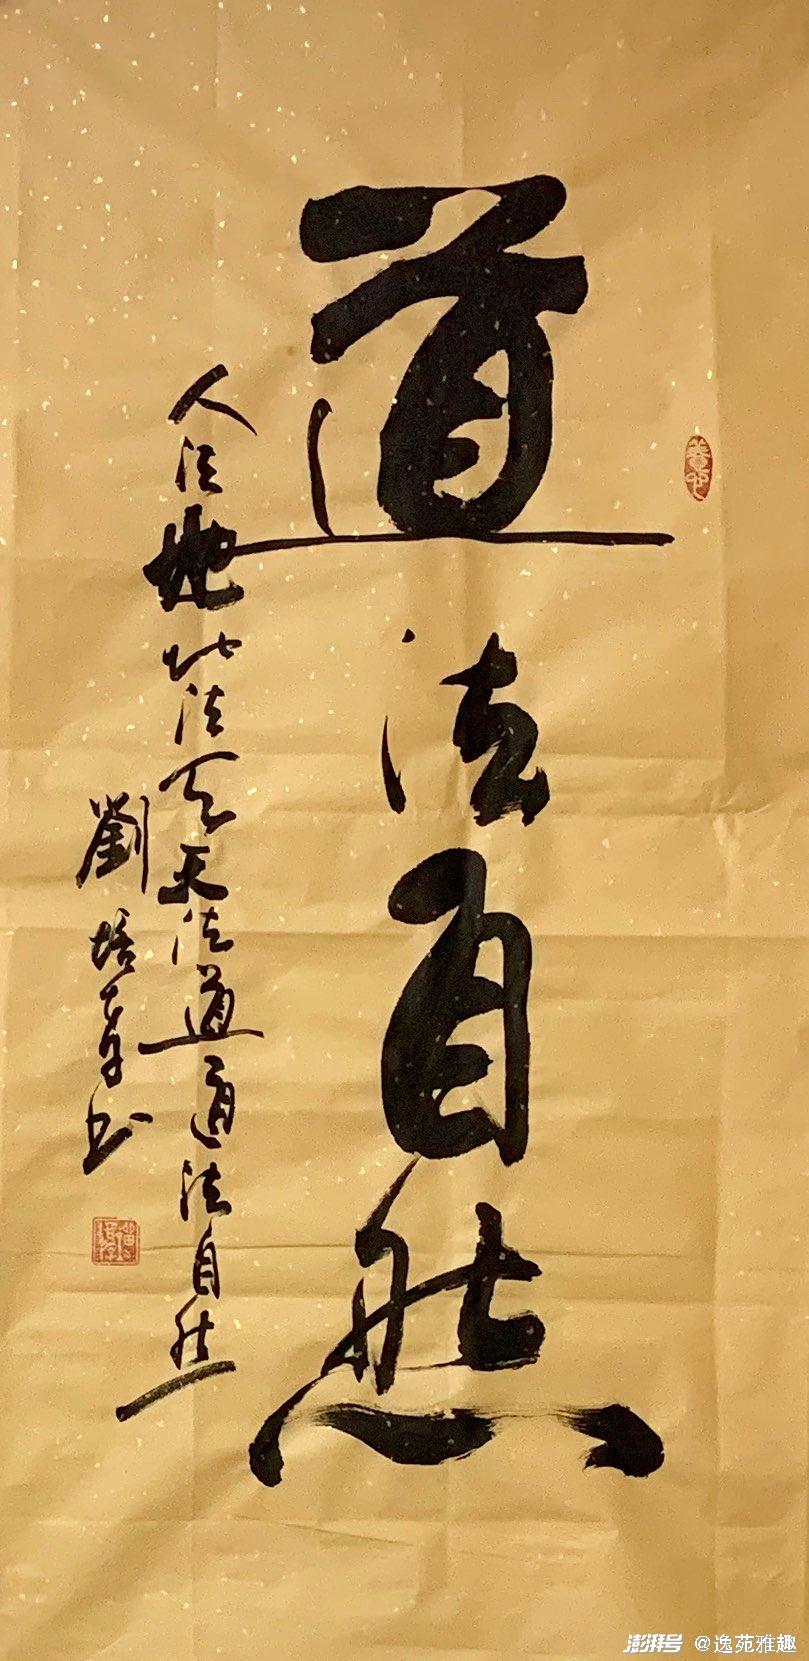 道法自然
人法地地法天天法道道法自然
劉培
书
澎湃号 @逸苑雅趣